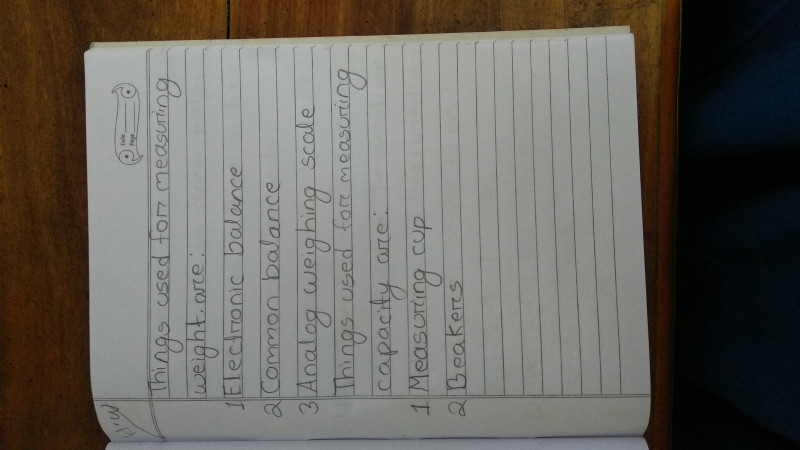 Date
Page
Things used for measuring
weight are:
1 Electronic balance
2 Common balance
3 Analog weighing scale
Things used for measuring
capacity are:
1 Measuring cup
2 Beakers